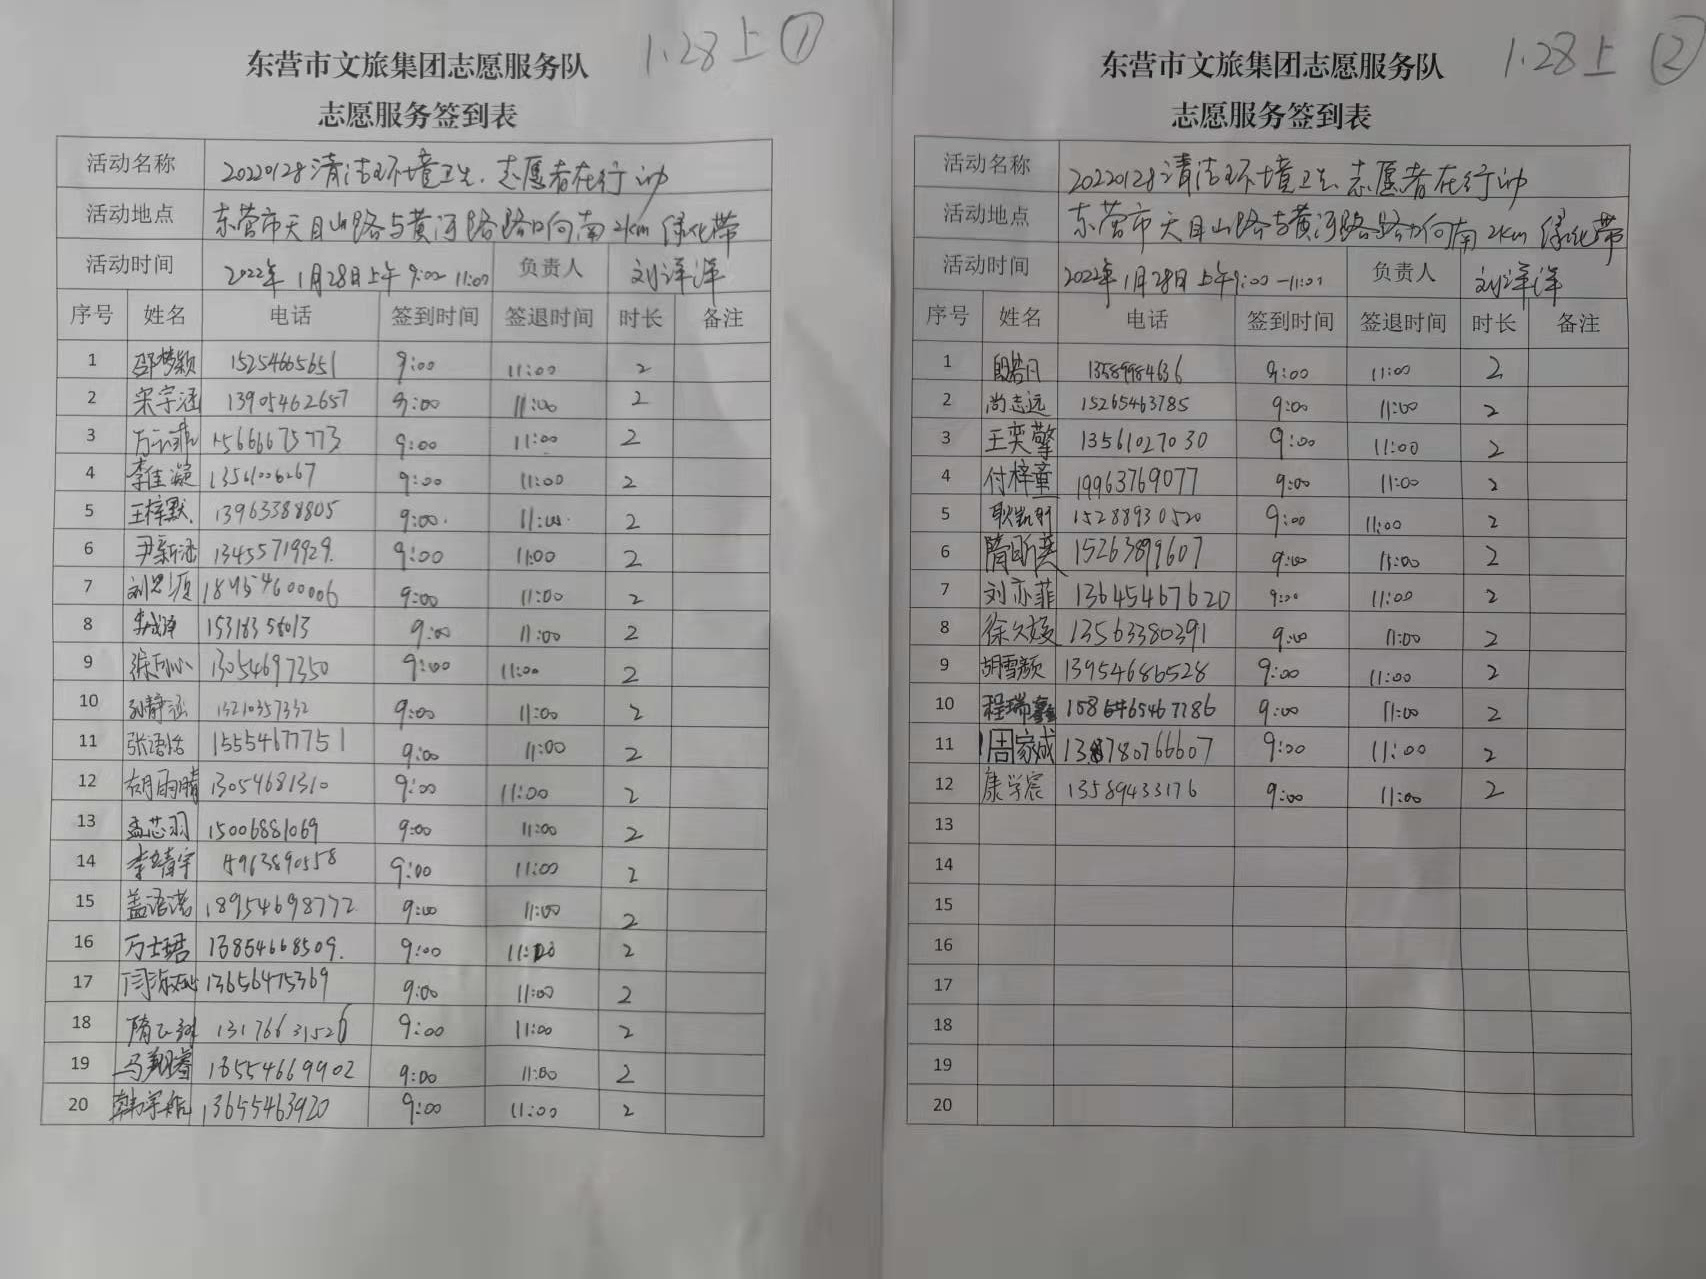 1.28上 ①
东营市文旅集团志愿服务队
志愿服务签到表
活动名称 20220128清洁环境卫生.志愿者在行动
活动地点 东营市天目山路与黄河路路口向南2km绿化带
活动时间 2022年1月28日上午9:00-11:00 负责人 刘洋洋
序号 姓名 电话 签到时间 签退时间 时长 备注
1 邵梦颖 15254665651 9:00 11:00 2
2 宋宇涵 13905462657 9:00 11:00 2
3 15666675773 9:00 11:00 2
4 李佳凝 13561006267 9:00 11:00 2
5 王梓默 13963388805 9:00 11:00 2
6 尹新涵 13455719929 9:00 11:00 2
7 18954600006 9:00 11:00 2
8 15318358013 9:00 11:00 2
9 13054697350 9:00 11:00 2
10 孙静涵 13210357332 9:00 11:00 2
11 张语恬 15554677751 9:00 11:00 2
12 胡雨晴 13054681310 9:00 11:00 2
13 孟芯羽 15006881069 9:00 11:00 2
14 李靖宇 9:00 11:00 2
15 盖语诺 18954698772 9:00 11:00 2
16 万士珺 13854668509 9:00 11:00 2
17 13656475369 9:00 11:00 2
18 13176631526 9:00 11:00 2
19 马翔睿 9:00 11:00 2
20 13655463920 9:00 11:00 2
1.28上 ②
东营市文旅集团志愿服务队
志愿服务签到表
活动名称 20220128清洁环境卫生.志愿者在行动
活动地点 东营市天目山路与黄河路路口向南2km绿化带
活动时间 2022年1月28日上午9:00-11:00 负责人 刘洋洋
序号 姓名 电话 签到时间 签退时间 时长 备注
1 13589984636 9:00 11:00 2
2 尚志远 15265463785 9:00 11:00 2
3 王奕擎 13561027030 9:00 11:00 2
4 付梓童 19963769077 9:00 11:00 2
5 15288930520 9:00 11:00 2
6 隋昕 15263899607 9:00 11:00 2
7 刘亦菲 13645467620 9:00 11:00 2
8 徐久媛 13563380391 9:00 11:00 2
9 胡雪颜 13954686528 9:00 11:00 2
10 程瑞鑫 9:00 11:00 2
11 周家成 9:00 11:00 2
12 康学宸 13589433176 9:00 11:00 2
13
14
15
16
17
18
19
20